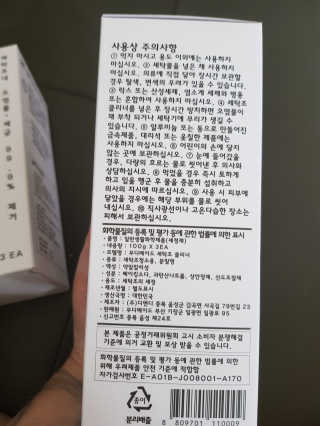 사용상 주의사항
① 먹지 마시고 용도 이외에는 사용하지
마십시오. ② 세탁물을 넣은 채 사용하지
마십시오. 의류에 직접 닿아 장시간 보관할
경우 탈색, 변색의 우려가 있을 수 있습니다.
③ 락스 또는 산성세제, 염소계 세제와 병용
또는 혼합하여 사용하지 마십시오. ④ 세탁조
클리너를 넣은 후 장시간 방치하면 오염물이
재 부착 되거나 세탁기에 무리가 생길 수
있습니다. ⑤ 알루미늄 또는 동으로 만들어진
금속제품, 대리석 또는 옻칠한 제품에는
사용하지 마십시오. ⑥ 어린이의 손에 닿지
않는 곳에 보관하십시오. ⑦ 눈에 들어갔을
경우, 다량의 흐르는 물로 씻어낸 후 의사와
상담하십시오. ⑧ 먹었을 경우 즉시 토하게
하고 입을 헹군 후 물을 충분히 섭취하고
의사의 지시에 따르십시오. ⑨ 사용 시 피부에
닿았을 경우에는 해당 부위를 물로 씻어
내십시오. ⑩ 직사광선이나 고온다습한 장소는
피해서 보관하십시오.
화학물질의 등록 및 평가 등에 관한 법률에 의한 표시
· 품명 : 일반생활화학제품(세정제)
· 내용량 : 100g X 3EA
· 모델명 : 무디메이드 세탁조 클리너
· 종류 : 세탁조청소용, 분말형
· 액성 : 약알칼리성
· 성분 : 베이킹소다, 과탄산나트륨, 상안정제, 산도조절제
· 용도 : 세탁조의 세정
· 제조년월 : 별도표시
· 생산국명 : 대한민국
· 제조자 : (주)디앤디 충북 음성군 감곡면 사곡길 79번길 23
· 판매원 : 무디메이드 부산 기장군 일광면 일광로 95
· 신고번호 충북 음성 제24호
본 제품은 공정거래위원회 고시 소비자 분쟁해결
기준에 의거 교환 및 보상 받을 수 있습니다.
화학물질의 등록 및 평가 등에 관한 법률에 의한
위해 우려제품 안전 기준에 적합함
자가검사번호 E-A01B-J008001-A170
종이
분리배출
8 809701 110009
세탁조내 오염물·세균 99.9% 제거
3 EA